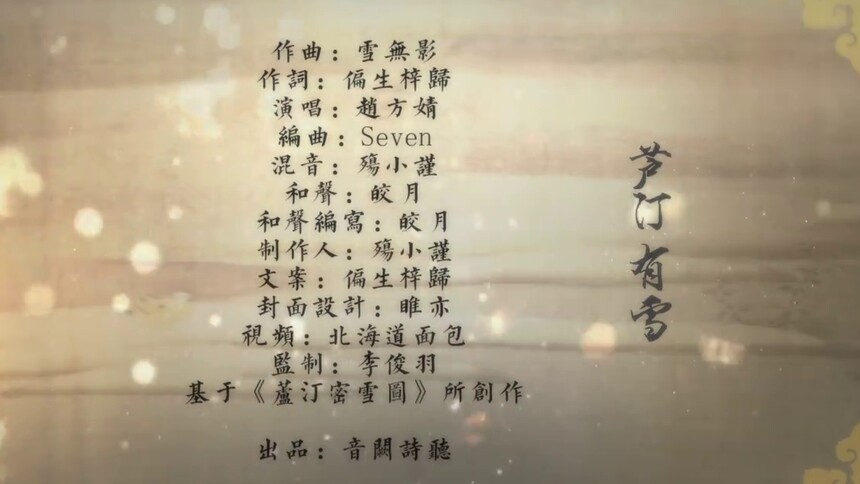 作曲：雪無影
作詞：偏生梓歸
演唱：趙方婧
編曲：Seven
混音：殤小謹
和聲：皎月
和聲編寫：皎月
制作人：殤小謹
文案：偏生梓歸
封面設計：睢亦
視頻：北海道面包
監制：李俊羽
基于《蘆汀密雪圖》所創作
出品：音闕詩聽
芦汀有雪